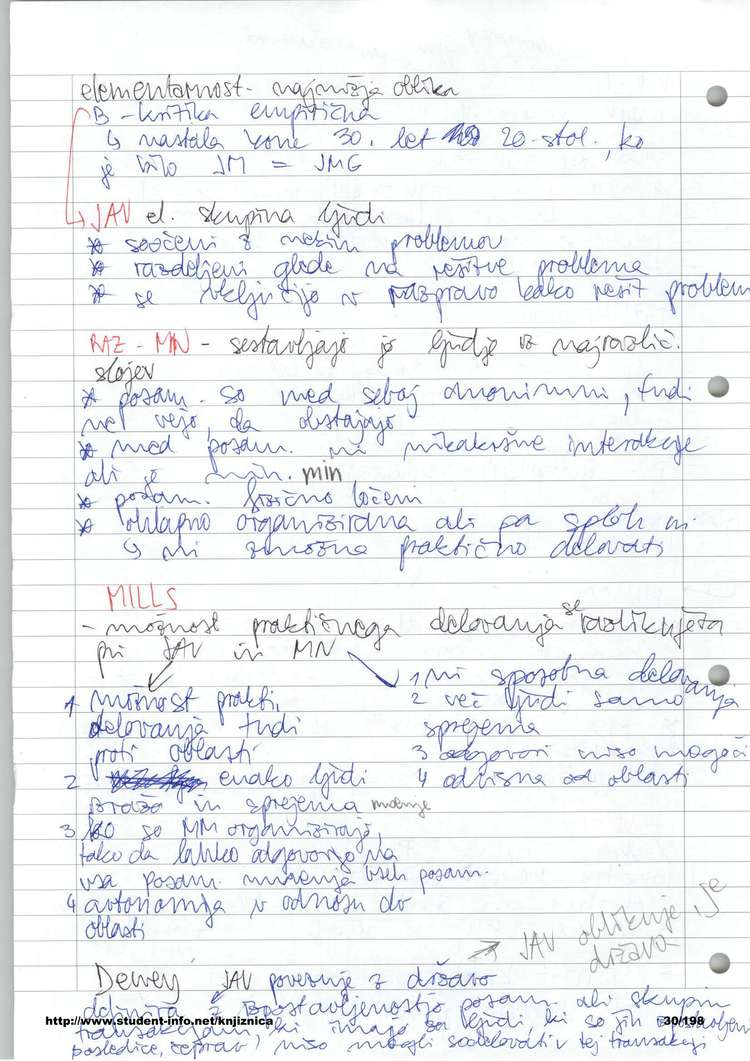 elementarnost - najnižja oblika
B - kritika empirična
↳ nastala konc 30. let 20. stol., ko
je bilo JM = JMG
JAV el. skupina ljudi
* soočeni z nekim problemom
* razdeljeni glede na rešitve problema
* se vključijo v razpravo kako rešit problem
RAZ - MN - sestavljajo jo ljudje iz najrazlič.
slojev
* posam. so med sebaj anonimni, tudi
ne vejo, da obstajajo
* med posam. ni nikakršne interakcije
ali je min. min
* posam. fizično ločeni
* ohlapno organizirana ali pa sploh ni
↳ ni zmožna praktično delovati
MILLS
- možnost praktičnega delovanja se razlikujeta
pri JAV in MN
1 možnost prakti.
delovanja tudi
proti oblasti
2 enako ljudi
izraža in sprejema mnenje
3 so MM organizirajo,
tako da lahko odgovorijo na
vsa posam. mnenja vseh posam.
4 avtonomija v odnosu do
oblasti
1 ni sposobna delovanja
2 več ljudi samo
sprejema
3 odgovori niso mogoči
4 odvisna od oblasti
JAV oblikuje se
država
Dewey JAV povezuje z državo
definira z vzpostavljenostjo posam. ali skupin
transakcija ki imajo za ljudi, ki so jih
posledice, čeprav niso mogli sodelovati v tej transakciji
http://www.student-info.net/knjiznica
30/198